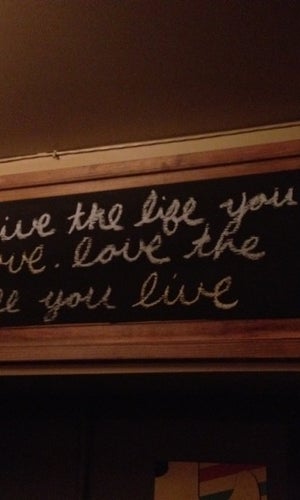 ive the life you
ove. Love the
e you live